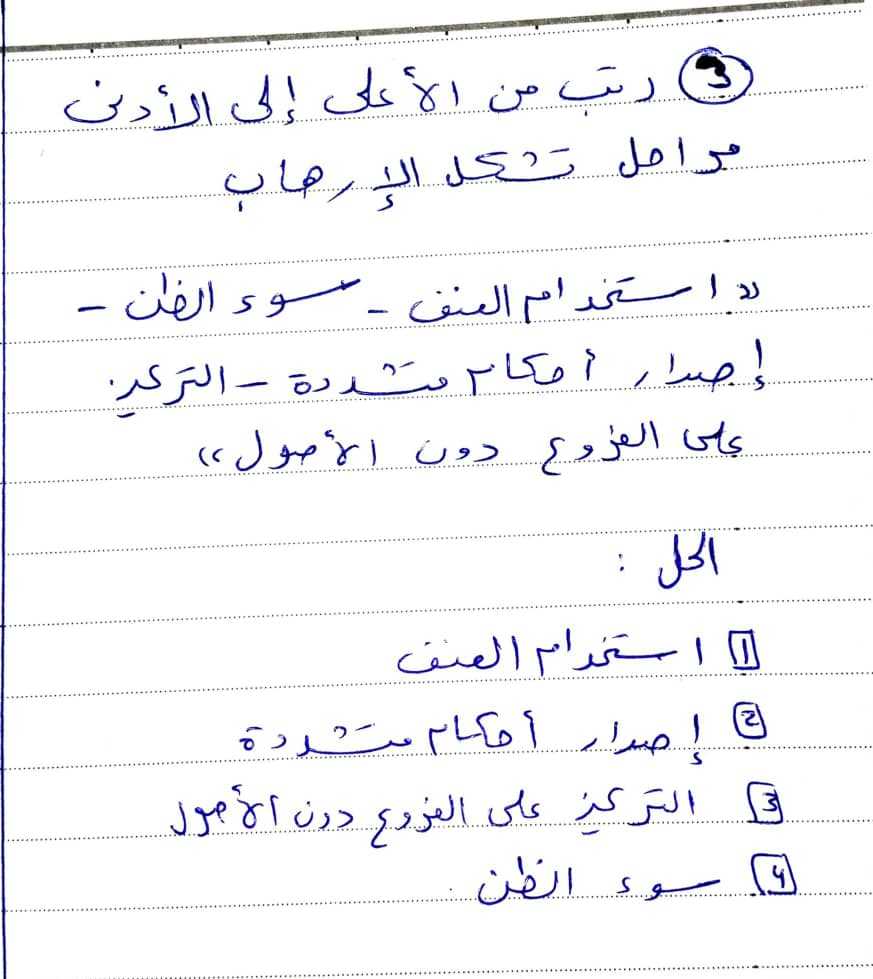 3 رتب من الأعلى إلى الأدنى
مراحل تشكل الإرهاب
« استخدام العنف - سوء الظن -
إصدار أحكام متشددة - التركيز
على الفروع دون الأصول »
الحل :
1 استخدام العنف
2 إصدار أحكام متشددة
3 التركيز على الفروع دون الأصول
4 سوء الظن